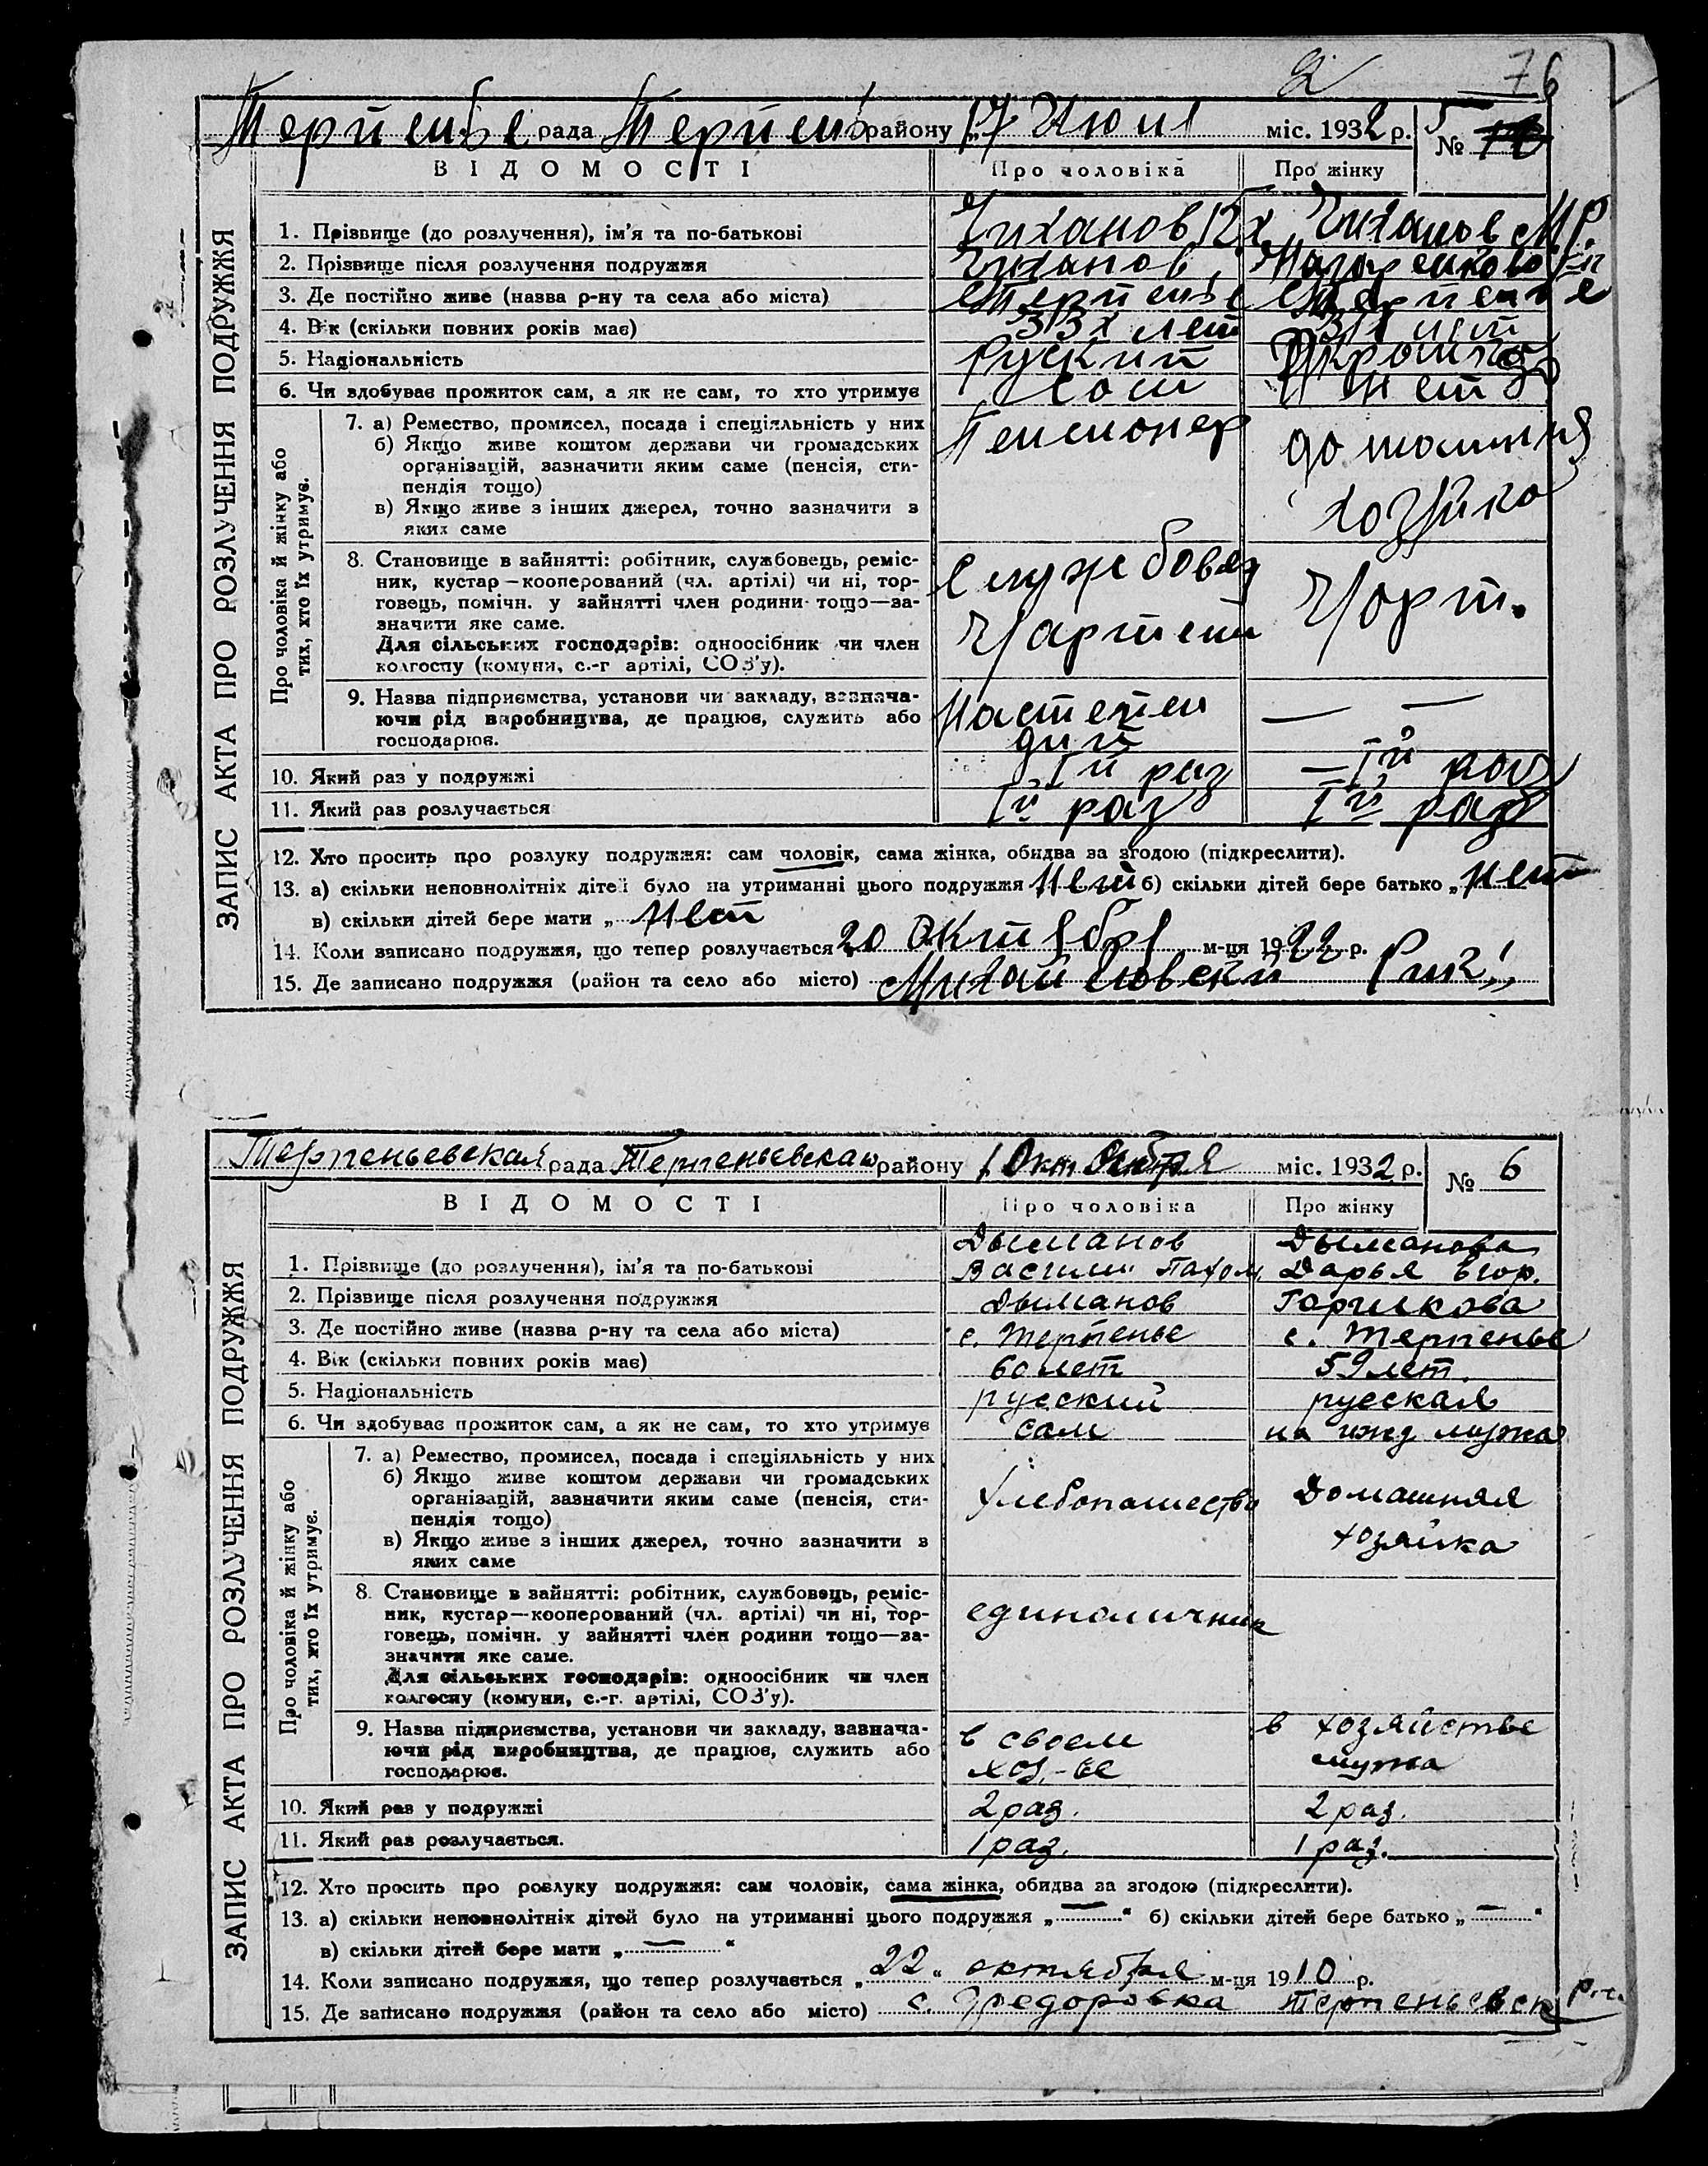 2
76
Терпенье рада Терпень району „17 Июля міс. 1932 р. № 5
ВІДОМОСТІ Про чоловіка Про жінку
ЗАПИС АКТА ПРО РОЗЛУЧЕННЯ ПОДРУЖЖЯ
1. Прізвище (до розлучення), ім'я та по-батькові
2. Прізвище після розлучення подружжя
3. Де постійно живе (назва р-ну та села або міста) с Терпенье с Терпенье
4. Вік (скільки повних років має) лет лет
5. Національність Руский
6. Чи здобуває прожиток сам, а як не сам, то хто утримує Сам Нет
Про чоловіка й жінку або
тих, хто їх утримує.
7. а) Ремество, промисел, посада і спеціяльність у них Пенсионер домашняя
б) Якщо живе коштом держави чи громадських
організацій, зазначити яким саме (пенсія, сти-
пендія тощо) хозяйка
в) Якщо живе з інших джерел, точно зазначити з
яких саме
8. Становище в зайнятті: робітник, службовець, реміс- Службовец
ник, кустар—кооперований (чл. артілі) чи ні, тор-
говець, помічн. у зайнятті член родини тощо—за-
значити яке саме.
Для сільських господарів: одноосібник чи член
колгоспу (комуни, с.-г артілі, СОЗ'у).
9. Назва підприємства, установи чи закладу, зазнача- — —
ючи рід виробництва, де працює, служить або
господарює.
10. Який раз у подружжі Iй раз — Iй раз
11. Який раз розлучається Iй раз Iй раз
12. Хто просить про розлуку подружжя: сам чоловік, сама жінка, обидва за згодою (підкреслити).
13. а) скільки неповнолітніх дітей було на утриманні цього подружжя Нет б) скільки дітей бере батько „ Нет
в) скільки дітей бере мати „ Нет
14. Коли записано подружжя, що тепер розлучається 20 Октября м-ця 1922 р.
15. Де записано подружжя (район та село або місто) Михайловски Рик
Терпеньевская рада Терпеньевская району „1 Октября міс. 1932 р. № 6
ВІДОМОСТІ Про чоловіка Про жінку
ЗАПИС АКТА ПРО РОЗЛУЧЕННЯ ПОДРУЖЖЯ
Дыманов Дыманова
1. Прізвище (до розлучення), ім'я та по-батькові Василий Пахом. Дарья Егор.
2. Прізвище після розлучення подружжя Дыманов Горчикова
3. Де постійно живе (назва р-ну та села або міста) с. Терпенье с. Терпенье
4. Вік (скільки повних років має) 60 лет 59 лет.
5. Національність русский русская
6. Чи здобуває прожиток сам, а як не сам, то хто утримує сам на ижд мужа
Про чоловіка й жінку або
тих, хто їх утримує.
7. а) Ремество, промисел, посада і спеціяльність у них
б) Якщо живе коштом держави чи громадських
організацій, зазначити яким саме (пенсія, сти- хлебопашество Домашняя
пендія тощо)
в) Якщо живе з інших джерел, точно зазначити з хозяйка
яких саме
8. Становище в зайнятті: робітник, службовець, реміс-
ник, кустар—кооперований (чл. артілі) чи ні, тор- единоличник
говець, помічн. у зайнятті член родини тощо—за-
значити яке саме.
Для сільських господарів: одноосібник чи член
колгоспу (комуни, с.-г. артілі, СОЗ'у).
9. Назва підприємства, установи чи закладу, зазнача- в своем в хозяйстве
ючи рід виробництва, де працює, служить або хоз.-ве мужа
господарює.
10. Який раз у подружжі 2 раз. 2 раз.
11. Який раз розлучається. 1 раз. 1 раз.
12. Хто просить про розлуку подружжя: сам чоловік, сама жінка, обидва за згодою (підкреслити).
13. а) скільки неповнолітніх дітей було на утриманні цього подружжя „—“ б) скільки дітей бере батько „—“
в) скільки дітей бере мати „—“
14. Коли записано подружжя, що тепер розлучається „22“ октября м-ця 1910 р.
15. Де записано подружжя (район та село або місто) с. Федоровка Терпеньевск